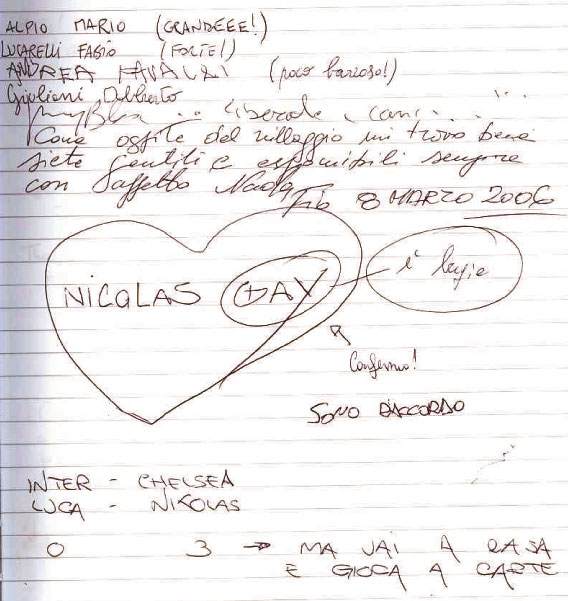 ALPIO MARIO (GRANDEEE!)
LUCARELLI FABIO (FORTE!)
ANDREA FAVALLI (poco barioso!)
Giuliani Alberto
liberate i cani...
Come ospite del villaggio mi trovo bene
siete gentili e esponibili sempre
con Saffetto Nada
8 MARZO 2006
NICOLAS GAY
è logico
Confermo!
SONO D'ACCORDO
INTER - CHELSEA
LUCA - NIKOLAS
0 3 → MA VAI A CASA
E GIOCA A CARTE